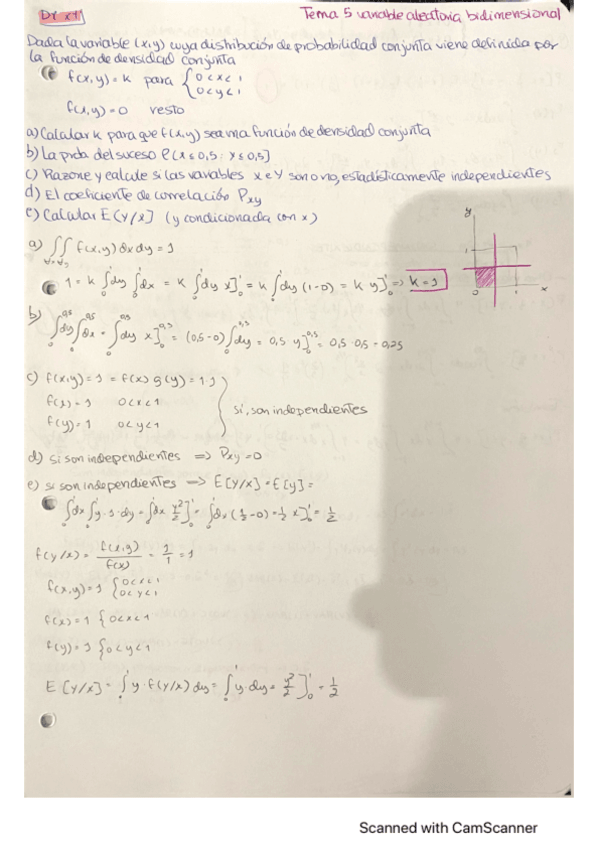 Tema 5 variable aleatoria bidimensional
Dada la variable (x,y) cuya distribución de probabilidad conjunta viene definida por
la función de densidad conjunta
f(x,y) = k para { 0<x<1
0<y<1
f(x,y)=0 resto
a) Calcular k para que f(x,y) sea una función de densidad conjunta
b) La prob del suceso P[x≤0,5 ; y≤0,5]
c) Razone y calcule si las variables x e Y son o no, estadísticamente independientes
d) El coeficiente de correlación Pxy
e) Calcular E[Y/x] (y condicionada con x)
a) ∫∫ f(x,y) dx dy = 1
1 = k ∫dy ∫dx = k ∫dy x]₀¹ = k ∫dy (1-0) = k y]₀¹ => k=1
b) ∫dy ∫dx = ∫dy x]₀^0,5 = (0,5-0) ∫dy = 0,5 y]₀^0,5 = 0,5 · 0,5 = 0,25
c) f(x,y)=1 = f(x) g(y) = 1·1
f(x)=1 0<x<1
f(y)=1 0<y<1
si, son independientes
d) si son independientes => Pxy=0
e) si son independientes => E[Y/x] = E[y] =
∫dx ∫y·1·dy = ∫dx y²/2]₀¹ = ∫dx (1/2-0) = 1/2 x]₀¹ = 1/2
f(y/x) = f(x,y)/f(x) = 1/1 = 1
f(x,y)=1 { 0<x<1
0<y<1
f(x)=1 { 0<x<1
f(y)=1 { 0<y<1
E[Y/x] = ∫y·f(y/x) dy = ∫y·dy = y²/2]₀¹ = 1/2
y
1
0
1
x
Scanned with CamScanner